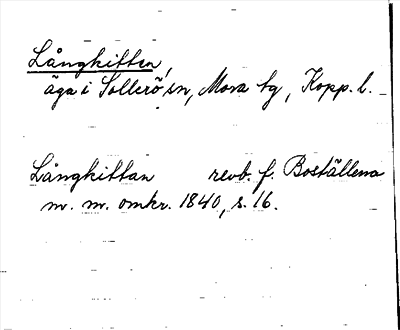 Långkittan,
äga i Sollerö sn, Mora tg, Kopp. l.
Långkittan revb. f. Boställena
m. m. omkr. 1840, s. 16.